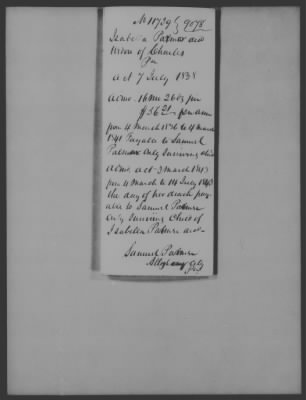 No 11739 } 9078
Isabella Palmer decd
widow of Charles
Pa
act 7 July 1838
admd. 16 Mo 26 ds pr
$36 per ann
from 4 March 1836 to 4 March
1841 Payable to Samuel
Palmer only surviving child
admd. act 3 March 1843
from 4 March to 14 July 1843
the day of her death pay-
able to Samuel Palmer
only surviving child of
Isabella Palmer decd
Samuel Palmer
Allegheny